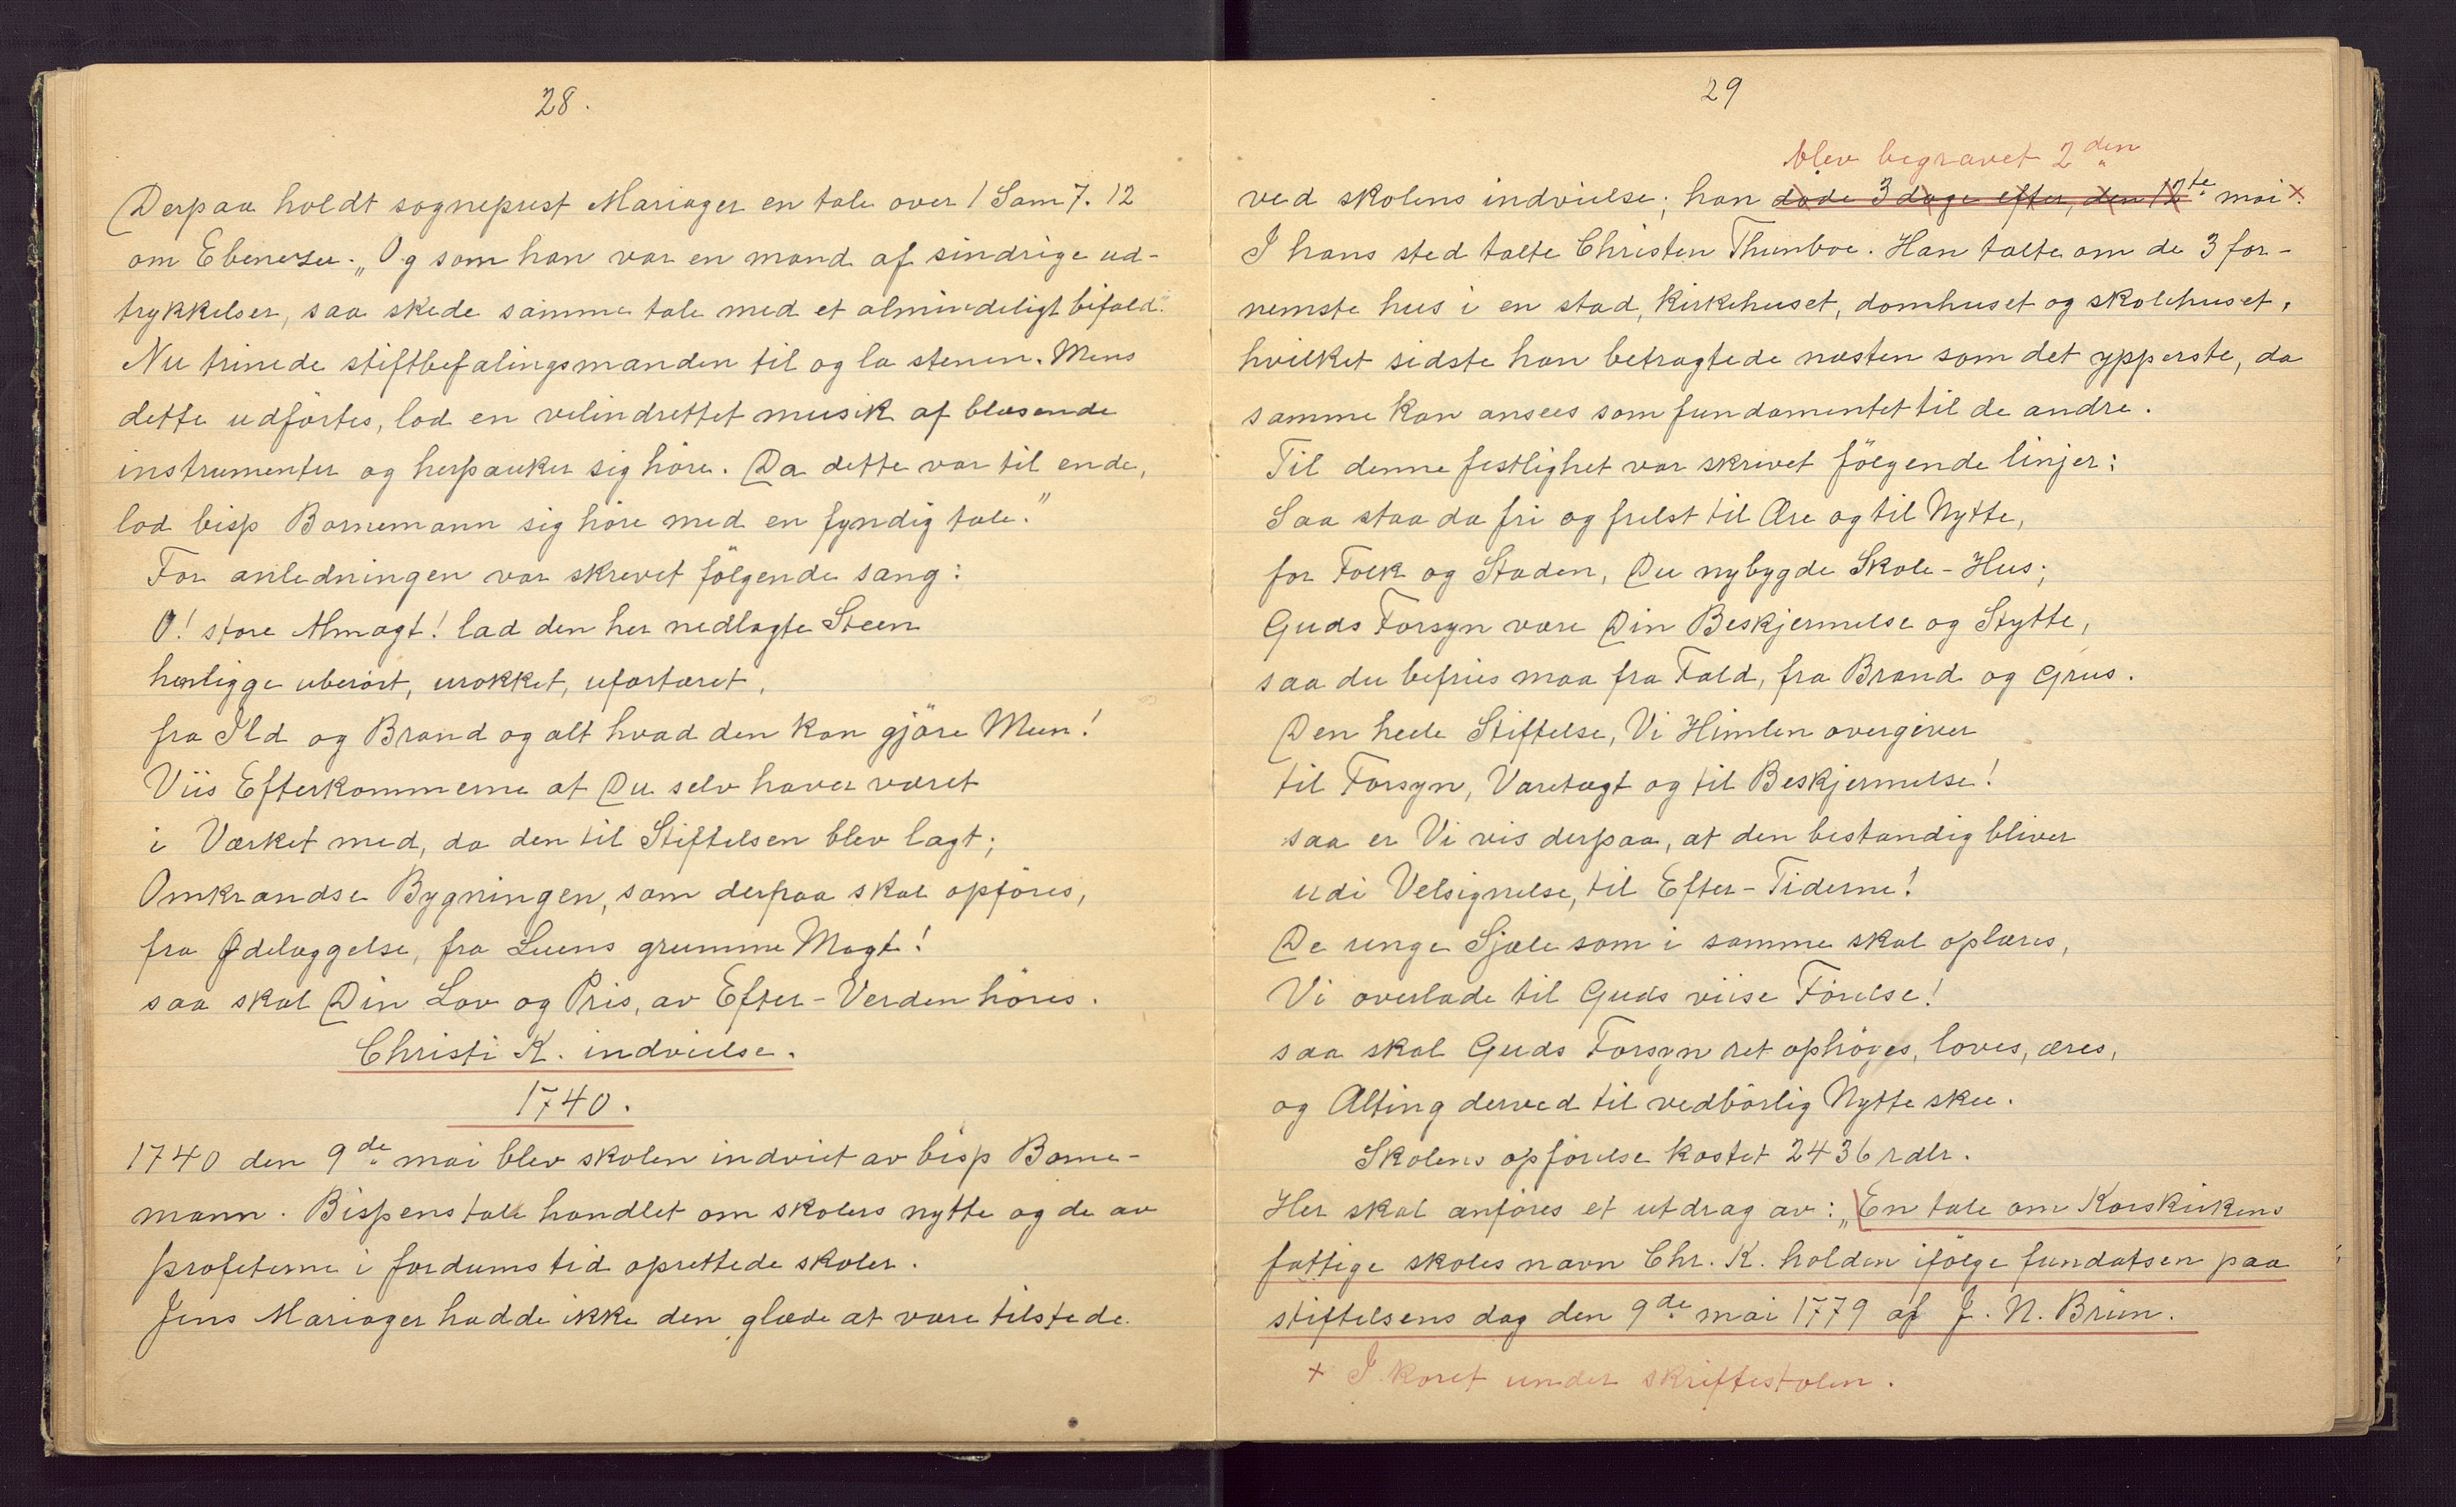 28.
Derpaa holdt sogneprest Mariager en tale over 1 Sam 7. 12
om Ebeneser. „Og som han var en mand af sindrige ud-
trykkelser, saa skede samme tale med et almindeligt bifald."
Nu trinede stiftbefalingsmanden til og la stenen. Mens
dette udførtes, lod en velindrettet musik af blæsende
instrumenter og herpauker sig høre. Da dette var til ende,
lod bisp Bornemann sig høre med en fyndig tale."
For anledningen var skrevet følgende sang:
O! store Almagt! lad den her nedlagte Steen
herligge uberørt, urokket, ufortæret,
fra Ild og Brand og alt hvad den kan gjøre Meen!
Viis Efterkommerne at Du selv haver været
i Værket med, da den til Stiftelsen blev lagt;
Omkrandse Bygningen, som derpaa skal opføres,
fra Ødelæggelse, fra Luens grumme Magt!
saa skal Din Lov og Pris, av Efter-Verden høres.
Christi K. indvielse.
1740.
1740 den 9de mai blev skolen indviet av bisp Borne-
mann. Bispens tale handlet om skolers nytte og de av
profeterne i fordums tid oprettede skoler.
Jens Mariager hadde ikke den glæde at være tilstede
29
blev begravet 2den
ved skolens indvielse; han døde 3 dage efter, den 12te mai x.
I hans sted talte Christen Thunboe. Han talte om de 3 for-
nemste hus i en stad, kirkehuset, domhuset og skolehuset,
hvilket sidste han betragtede næsten som det ypperste, da
samme kan ansees som fundamentet til de andre.
Til denne festlighet var skrevet følgende linjer:
Saa staa da fri og frelst til Ære og til Nytte,
for Folk og Staden, Du nybygde Skole-Hus;
Guds Forsyn være Din Beskjermelse og Stytte,
saa du befries maa fra Fald, fra Brand og Grus.
Den heele Stiftelse, Vi Himlen overgiver
til Forsyn, Varetægt og til Beskjermelse!
saa er Vi vis derpaa, at den bestandig bliver
udi Velsignelse, til Efter-Tiderne!
De unge Sjæle som i samme skal oplæres,
Vi overlade til Guds viise Førelse!
saa skal Guds Forsyn ret ophøyes, loves, æres,
og Alting derved til vedbørlig Nytte skee.
Skolens opførelse kostet 2436 rdlr.
Her skal anføres et utdrag av: „En tale om Korskirkens
fattige skoles navn Chr. K. holden ifølge fundatsen paa
stiftelsens dag den 9de mai 1779 af J. N. Brün.
+ I koret under skriftestolen.